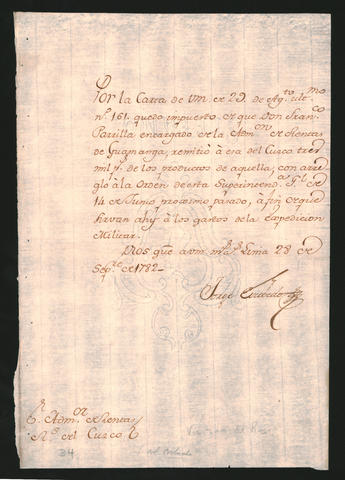 Por la Carta de Vm. de 29. de Agto. ultmo.
nº. 161. quedo impuesto de que Don Franco.
Parrilla encargado de la Admon. de Rentas
de Guamanga, remitió à esa del Cuzco tres
mil ps. de los productos de aquella, con arre-
glo à la Orden de esta Superintend. Gl. de
14 de Junio proximo pasado, à fin de que
sirvan ahy à los gastos de la Expedicion
Militar.
Dios gue. à vm. ms. as. Lima 28 de
Sepre. de 1782
Jorge Escobedo
Sr. Admor. de Rentas
Rs. del Cuzco
34